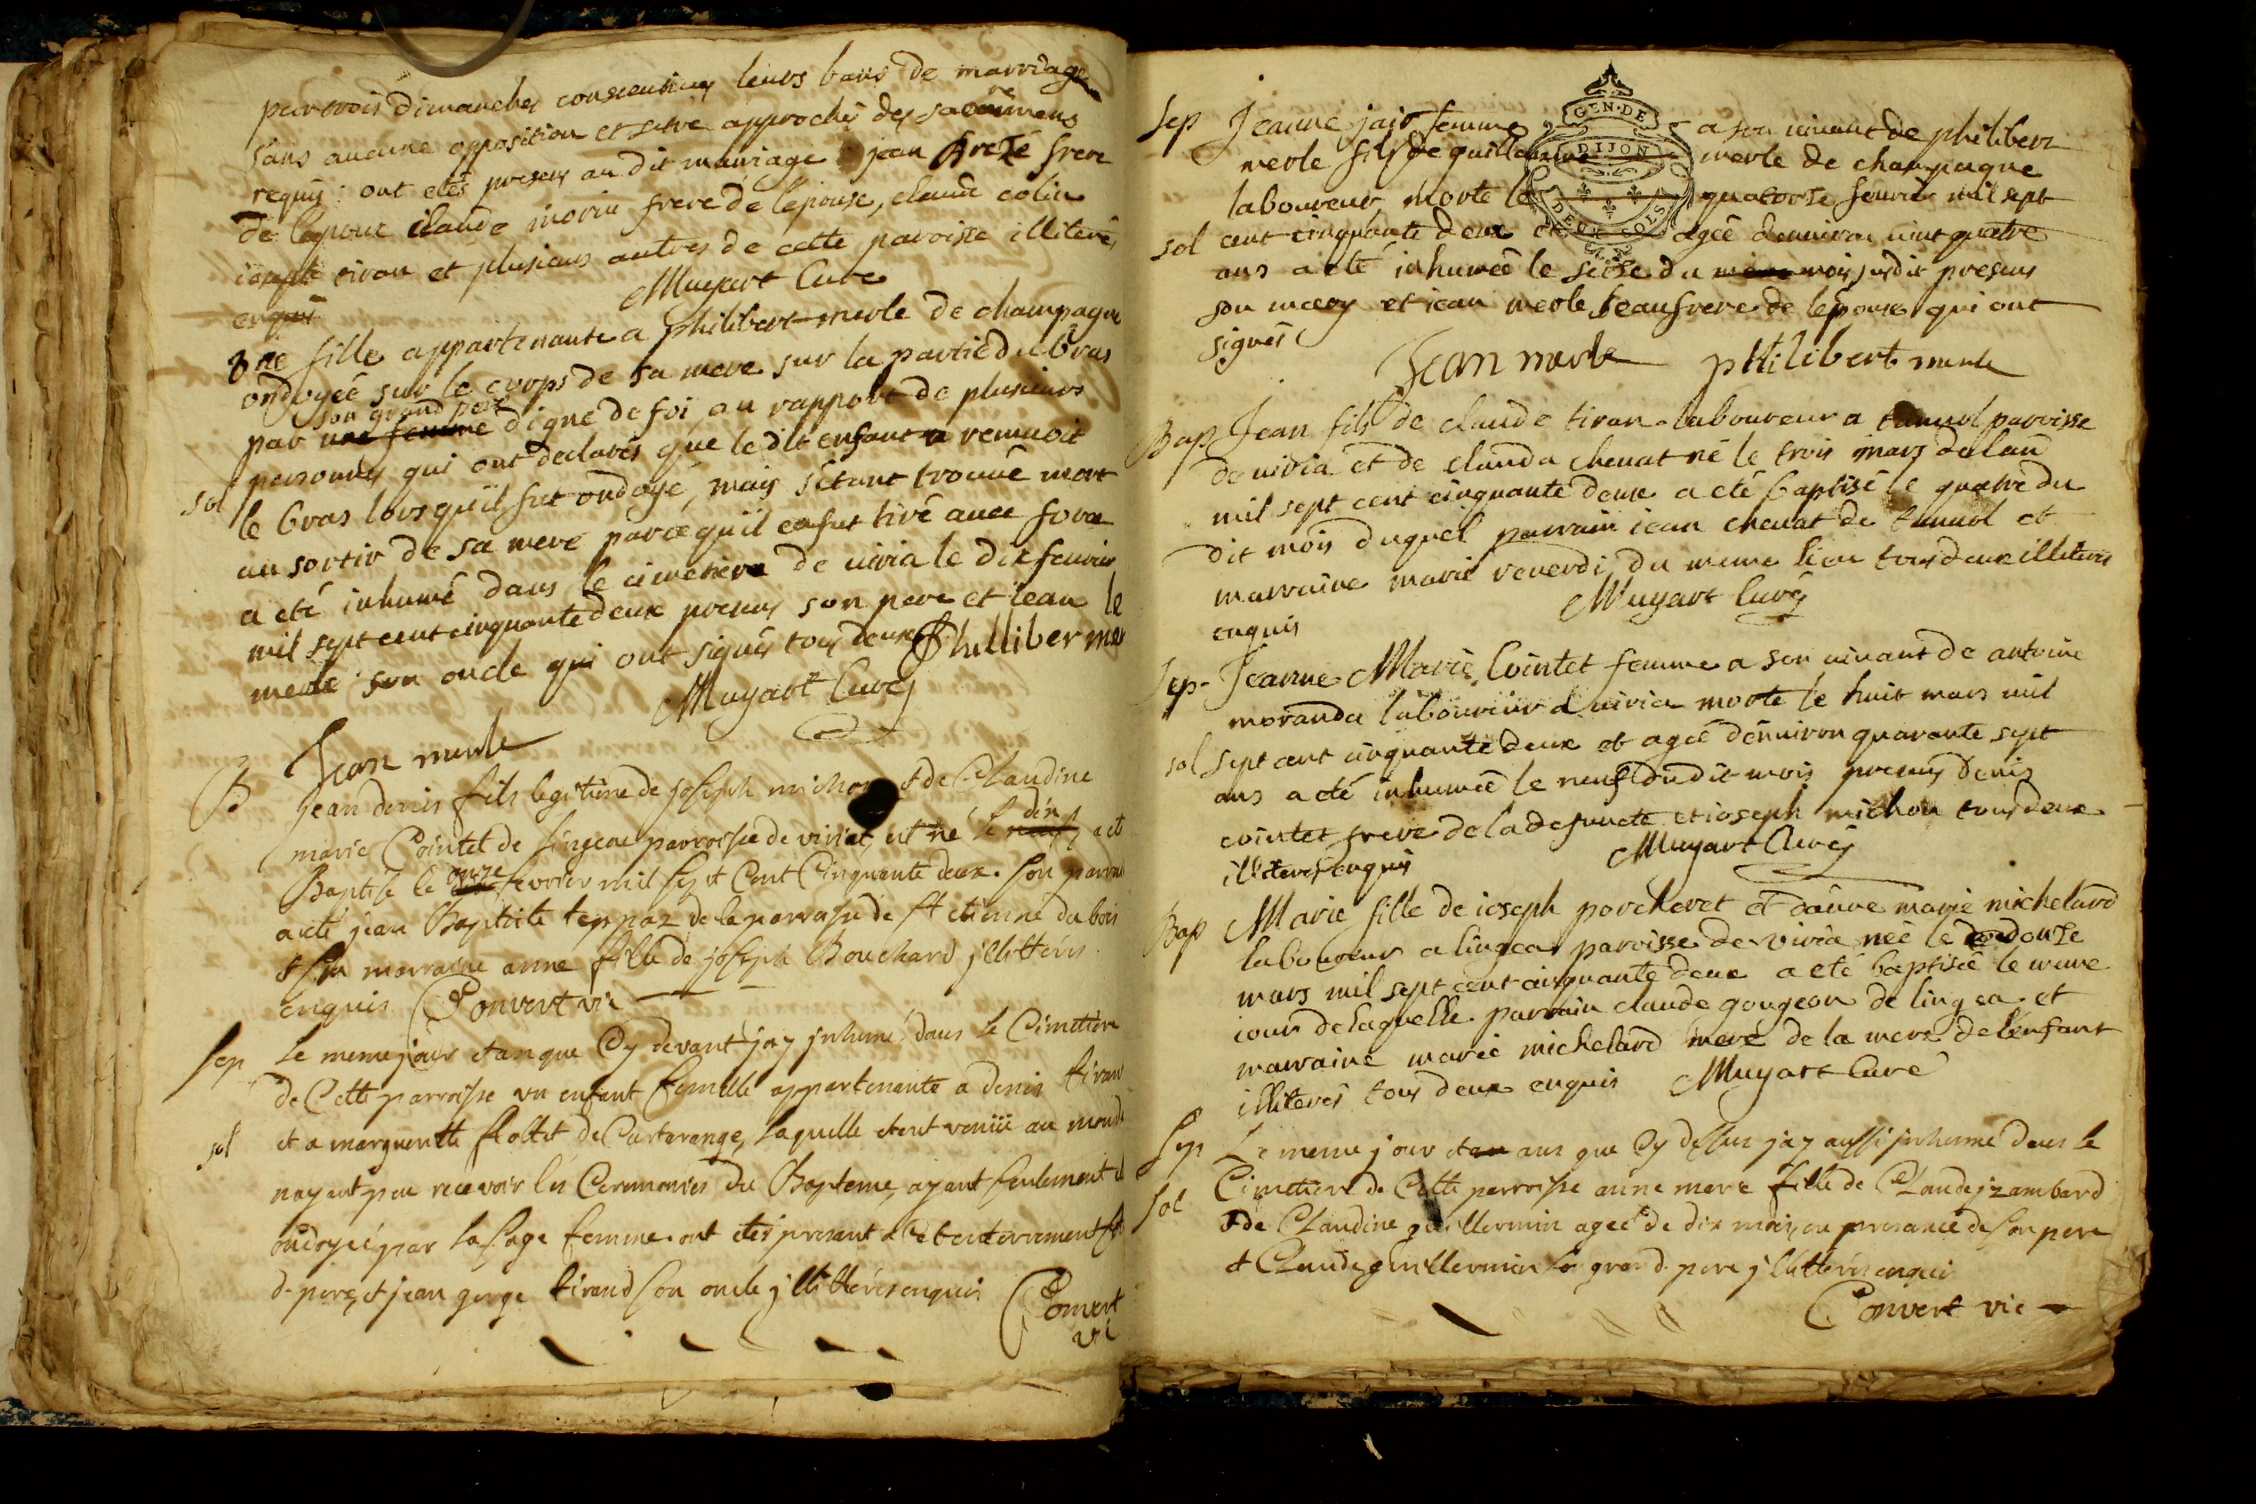 par trois dimanches consecutives leurs bans de marriage
sans aucune opposition et sètre approchés des sacremens
requis: ont etés presens au dit mariage jean frere
de lepoux claude morin frere de lepouse, claude colin
tiran et plusieurs autres de cette paroisse illiterés
enquis
Muyart Curé
une fille appartenante a philibert merle de champagne
ondoyée sur le corps de sa mere sur la partie du bras
son grand pere
par une femme digne de foi au rapport de plusieurs
personnes qui ont declarés que le dit enfant remuoit
sol
le bras lorsquil fut ondoyé, mais sétant trouvé mort
au sortir de sa mere parcequil en fut tiré avec force
a eté inhumé dans le cimetiere de viria le dix fevrier
mil sept cent cinquante deux presens son pere et iean
merle son oncle qui ont signés tous deux Philliber mer
le
Muyart Curé
Jean merle
B Jean denis fils legitime de joseph michon et de Claudine
marie Cointet de lingeat parroisse de viriat, est né le neuf dix a eté
Baptisé le onze fevrier mil sept Cent Cinquante deux. Son parrain
a eté jean Baptiste de la parroisse de st etienne du bois
et sa marraine anne fille de joseph Bouchard jllitterés
enquis Convert vic
Sep Le meme jour et an que Cy devant jay jnhumé dans le Cimetiere
de Cette parroisse un enfant femelle appartenante a denis tirand
sol et a margueritte de Curtarange, laquelle etant venüe au monde
nayant peu recevoir les Ceremonies du Bapteme, ayant seulement eté
ondoyée par la sage femme. ont etés present a Cet enterrement
d. pere, et jean gorge tirand son oncle jllitterés enquis
Convert
vi
Sep Jeanne jaio femme a son vivant de philibert
merle fils de guillaume merle de champagne
laboureur, morte le quatorse fevrier mil sept
GEN. DE
DIJON
DEUX SOLS
sol cent cinquante deux et agée denviron vint quatre
ans a eté inhumée le seize du mois susdit presens
son mary et iean merle beaufrere de lepouse qui ont
signés
Jean merle philibert merle
Bap Jean fils de claude tiran laboureur a tanvol paroisse
de viria et de clauda chenat né le trois mars de lan
mil sept cent cinquante deux a eté baptisé le quatre du
dit mois duquel parrain iean chenat de tanvol et
marraine marie reverdi du meme lieu tous deux illiterés
enquis
Muyart Curé
Sep- Jeanne Marie Cointet femme a son vivant de antoine
moranda laboureur a viria morte le huit mars mil
sol sept cent cinquante deux et agée denviron quarante sept
ans a eté inhumée le neuf du dit mois presens denis
cointet frere de la defuncte et ioseph michon tous deux
illiterés enquis
Muyart Curé
Bap Marie fille de ioseph porcheret et danne marie michelard
laboureur a lingea paroisse de viria née le douze
mars mil sept cent cinquante deux a eté baptisée le meme
iour de laquelle parrain claude gougeon de lingea et
marraine marie michelard mere de la mere de lenfant
illiterés tous deux enquis Muyart Curé
Sep Le meme jour et an que Cy dessus jay aussi jnhumé dans le
Cimetiere de Cette parroisse anne marie fille de Claude jzambard
sol et de Claudine guillermin ageé de dix mois, en presance de son pere
et Claude guillermin son grand. pere jllitterés enquis
Convert vic